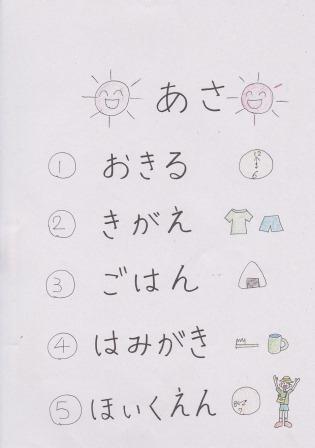 あさ
① おきる
② きがえ
③ ごはん
④ はみがき
⑤ ほいくえん